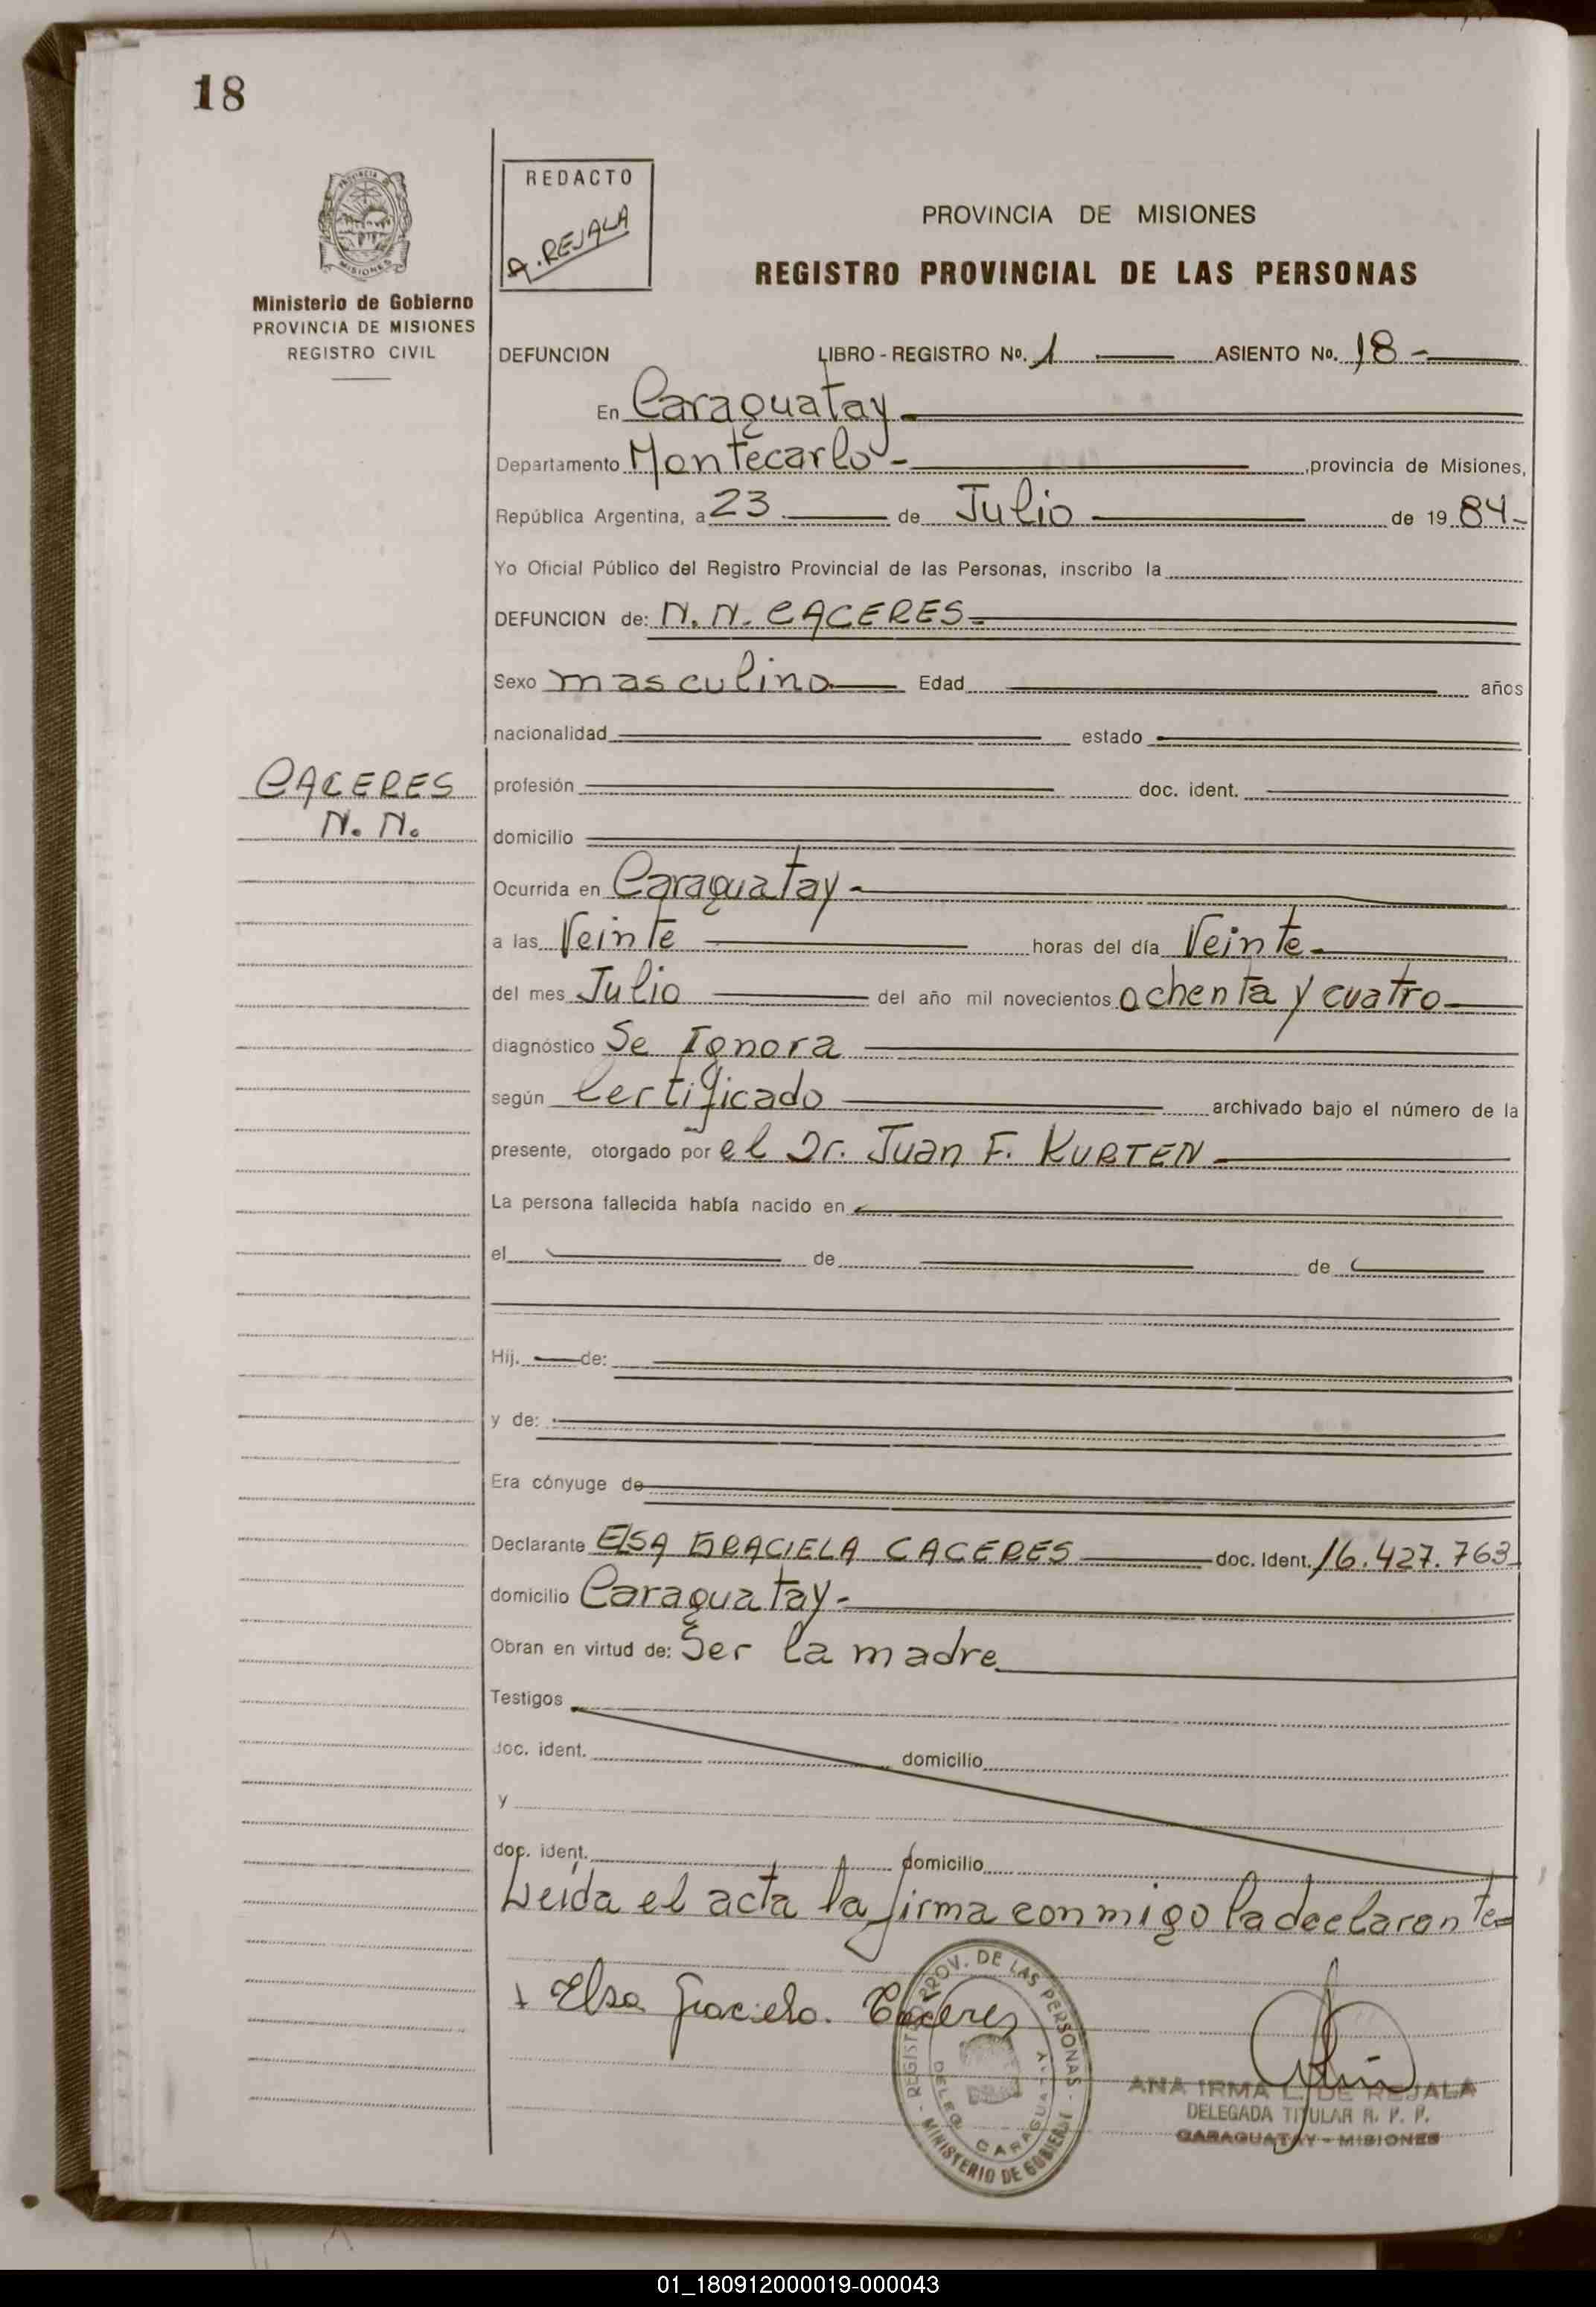 18
PROVINCIA DE
MISIONES
Ministerio de Gobierno
PROVINCIA DE MISIONES
REGISTRO CIVIL
REDACTO
A. REJALA
PROVINCIA DE MISIONES
REGISTRO PROVINCIAL DE LAS PERSONAS
DEFUNCION LIBRO - REGISTRO No. 1 ASIENTO No. 18 -
En Caraguatay
Departamento Montecarlo - , provincia de Misiones,
República Argentina, a 23 de Julio de 19 84 -
Yo Oficial Público del Registro Provincial de las Personas, inscribo la
DEFUNCION de: N. N. CACERES
Sexo masculino Edad años
nacionalidad estado
CACERES
N. N.
profesión doc. ident.
domicilio
Ocurrida en Caraguatay -
a las Veinte horas del día Veinte -
del mes Julio del año mil novecientos ochenta y cuatro
diagnóstico Se Ignora
según Certificado archivado bajo el número de la
presente, otorgado por el Dr. Juan F. KURTEN
La persona fallecida había nacido en
el de de
Hij. de:
y de:
Era cónyuge de
Declarante ELSA GRACIELA CACERES doc. Ident. 16.427.763
domicilio Caraguatay -
Obran en virtud de: Ser la madre
Testigos
doc. ident. domicilio
y
doc. ident. domicilio
Leída el acta la firma conmigo la declarante
Elsa Graciela. Caceres
REGISTRO PROV. DE LAS PERSONAS -
MINISTERIO DE GOBIERNO
DELEG. CARAGUATAY
ANA IRMA L. DE REJALA
DELEGADA TITULAR R. P. P.
CARAGUATAY - MISIONES
01_180912000019-000043